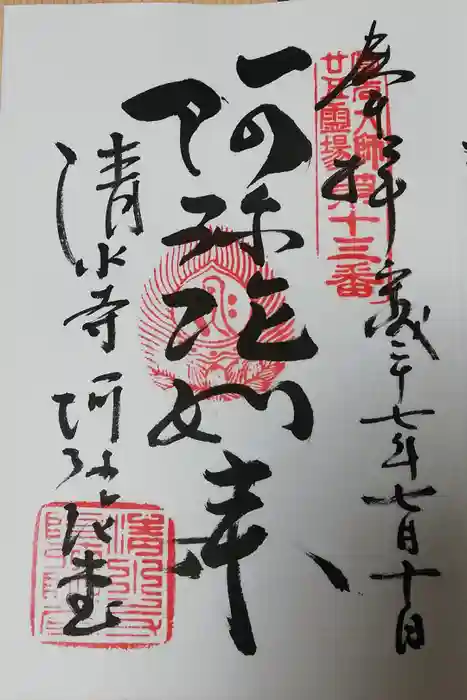 奉拝 平成二十七年七月十日
圓光大師
廿五霊場第十三番
阿弥陀如来
清水寺 阿弥陀堂